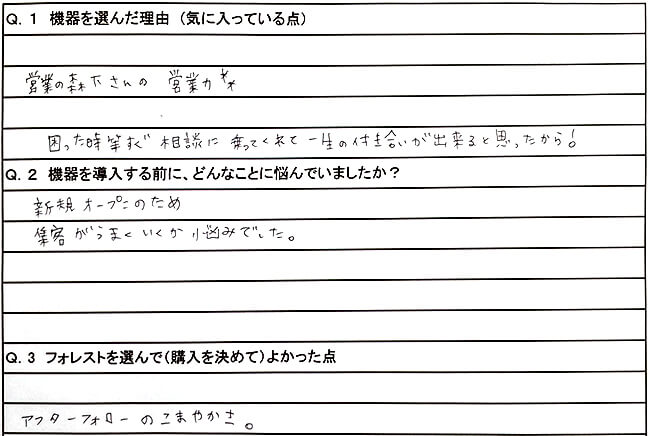 Q. 1 機器を選んだ理由 (気に入っている点)
営業の森下さんの 営業力**
困った時等すぐ 相談に 乗ってくれて 一生の付き合いが出来ると思ったから!
Q. 2 機器を導入する前に、どんなことに悩んでいましたか?
新規オープンのため
集客がうまくいくか悩みでした。
Q. 3 フォレストを選んで(購入を決めて)よかった点
アフターフォローのこまやかさ。